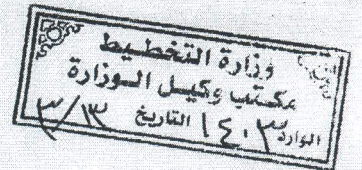 وزارة التخطيط
مكتب وكيل الوزارة
الوارد ١٤٠٣ التاريخ ٣/١٣